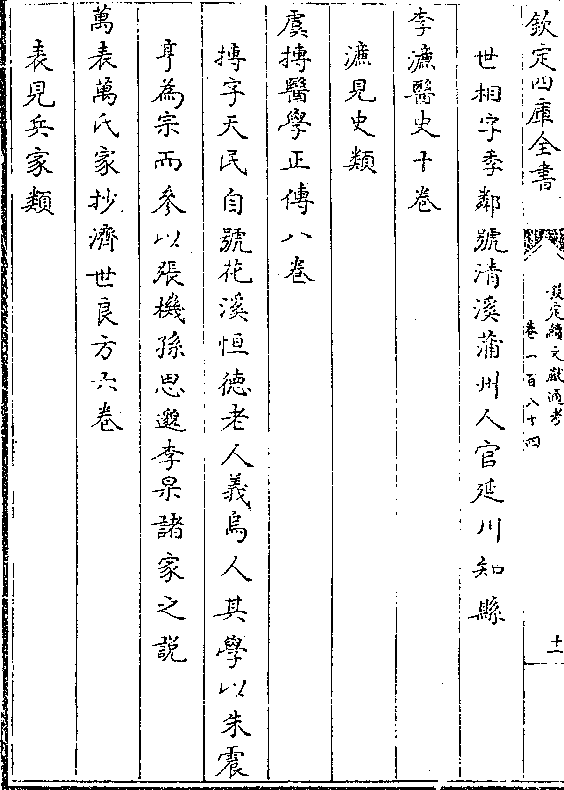 欽定四庫全書
欽定續文獻通考
卷一百八十四
十一
世相字季鄰號清溪蒲州人官延川知縣
李濂醫史十卷
濂見史類
虞摶醫學正傳八卷
摶字天民自號花溪恒德老人義烏人其學以朱震
亨為宗而參以張機孫思邈李杲諸家之説
萬表萬氏家抄濟世良方六卷
表見兵家類